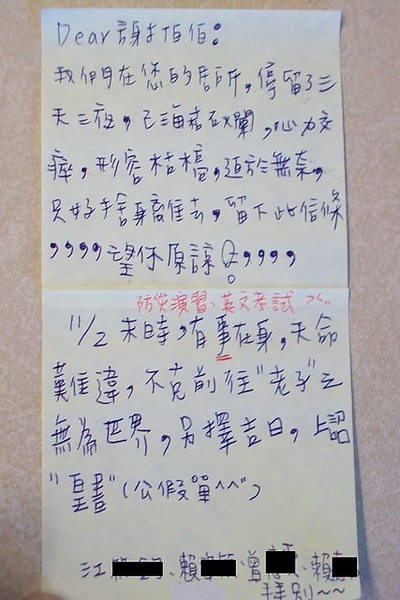 Dear 謝才伯伯:
我們在您的居所,停留了三
天三夜,已海枯石爛,心力交
瘁,形容枯槁,迫於無奈,
只好捨身離去,留下此信條
,,,,望你原諒Q,,,,
防災演習、英文考試
11/2 未時,有事在身,天命
難違,不克前往"老子"之
無為世界,另擇吉日,上詔
"聖書"(公假單^^")
江 、賴 、曾 、賴
拜別~~